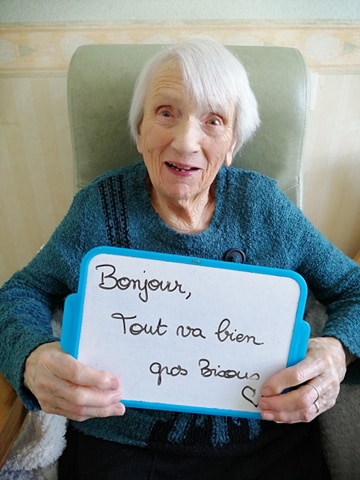 Bonjour,
Tout va bien
gros Bisous
♡